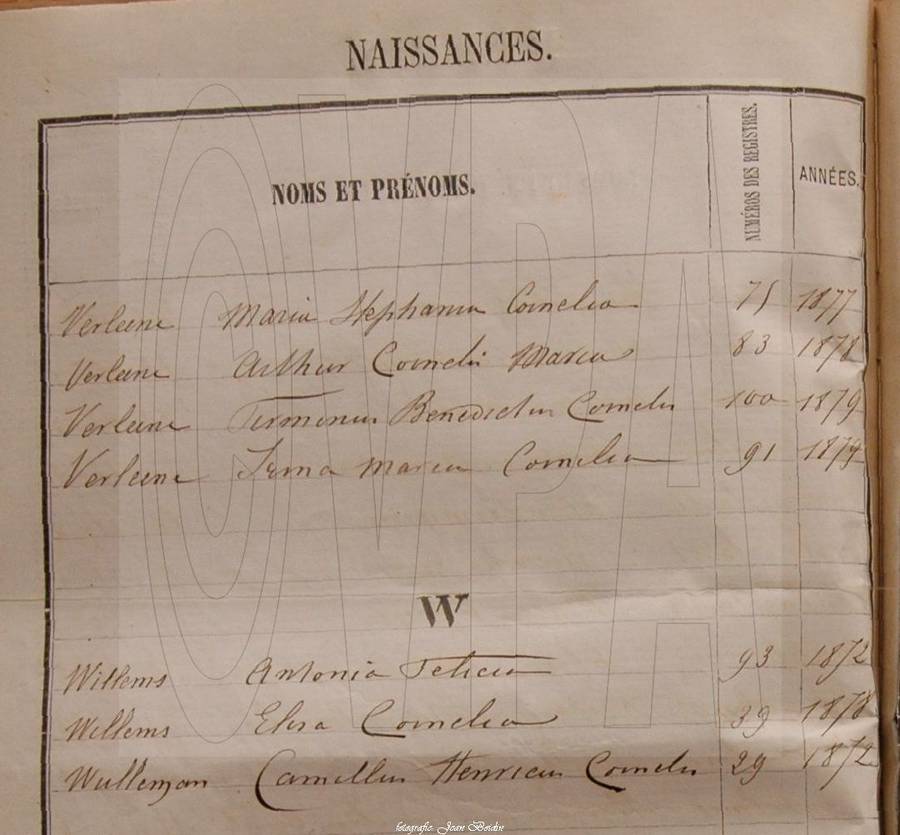 NAISSANCES.
NOMS ET PRÉNOMS.
NUMÉROS DES REGISTRES.
ANNÉES.
Verleene Maria Stephania Cornelia 75 1877
Verleene Arthur Cornelis Maria 83 1878
Verleene Firmonus Benedictus Cornelis 100 1879
Verleene Irma Maria Cornelia 91 1874
W
Willems Antonia Felicia 93 1872
Willems Elisa Cornelia 39 1878
Wulleman Camillus Henricus Cornelis 29 1872
fotografie: Joan Boidin